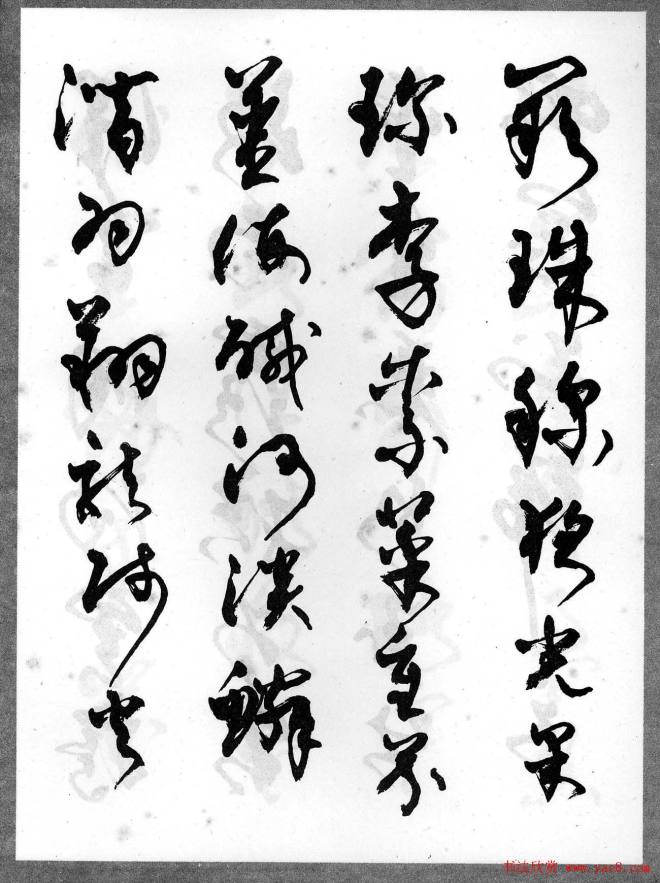 闕珠稱夜光果
珍李柰菜重芥
薑海鹹河淡鱗
潛羽翔龍師火
书法欣赏 www.yac8.com